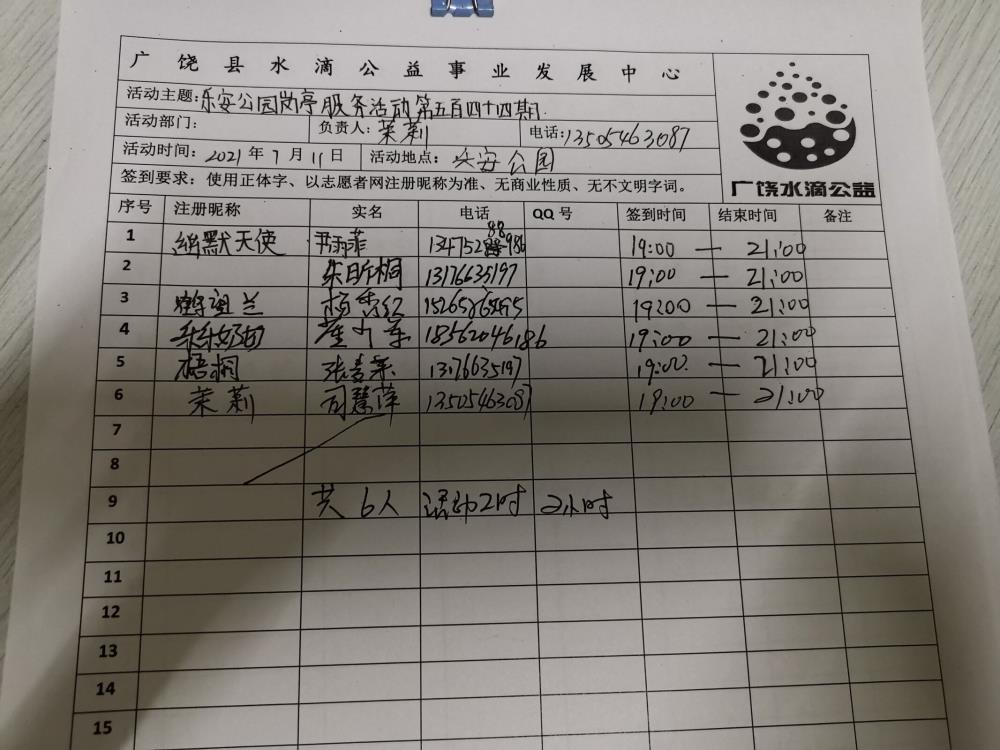 广饶县水滴公益事业发展中心
活动主题：乐安公园岗亭服务活动第五百四十四期
活动部门： 负责人：茉莉 电话：13505463087
活动时间：2021年7月11日 活动地点：乐安公园
签到要求：使用正体字、以志愿者网注册昵称为准、无商业性质、无不文明字词。
广饶水滴公益
序号 注册昵称 实名 电话 QQ号 签到时间 结束时间 备注
1 幽默天使 尹雨菲 19:00 — 21:00
2 朱昕桐 13176635197 19:00 — 21:00
3 19:00 — 21:00
4 18562046186 19:00 — 21:00
5 梧桐 13176635197 19:00 — 21:00
6 茉莉 司慧萍 13505463087 19:00 — 21:00
7
8
9 共6人 活动2时 2小时
10
11
12
13
14
15